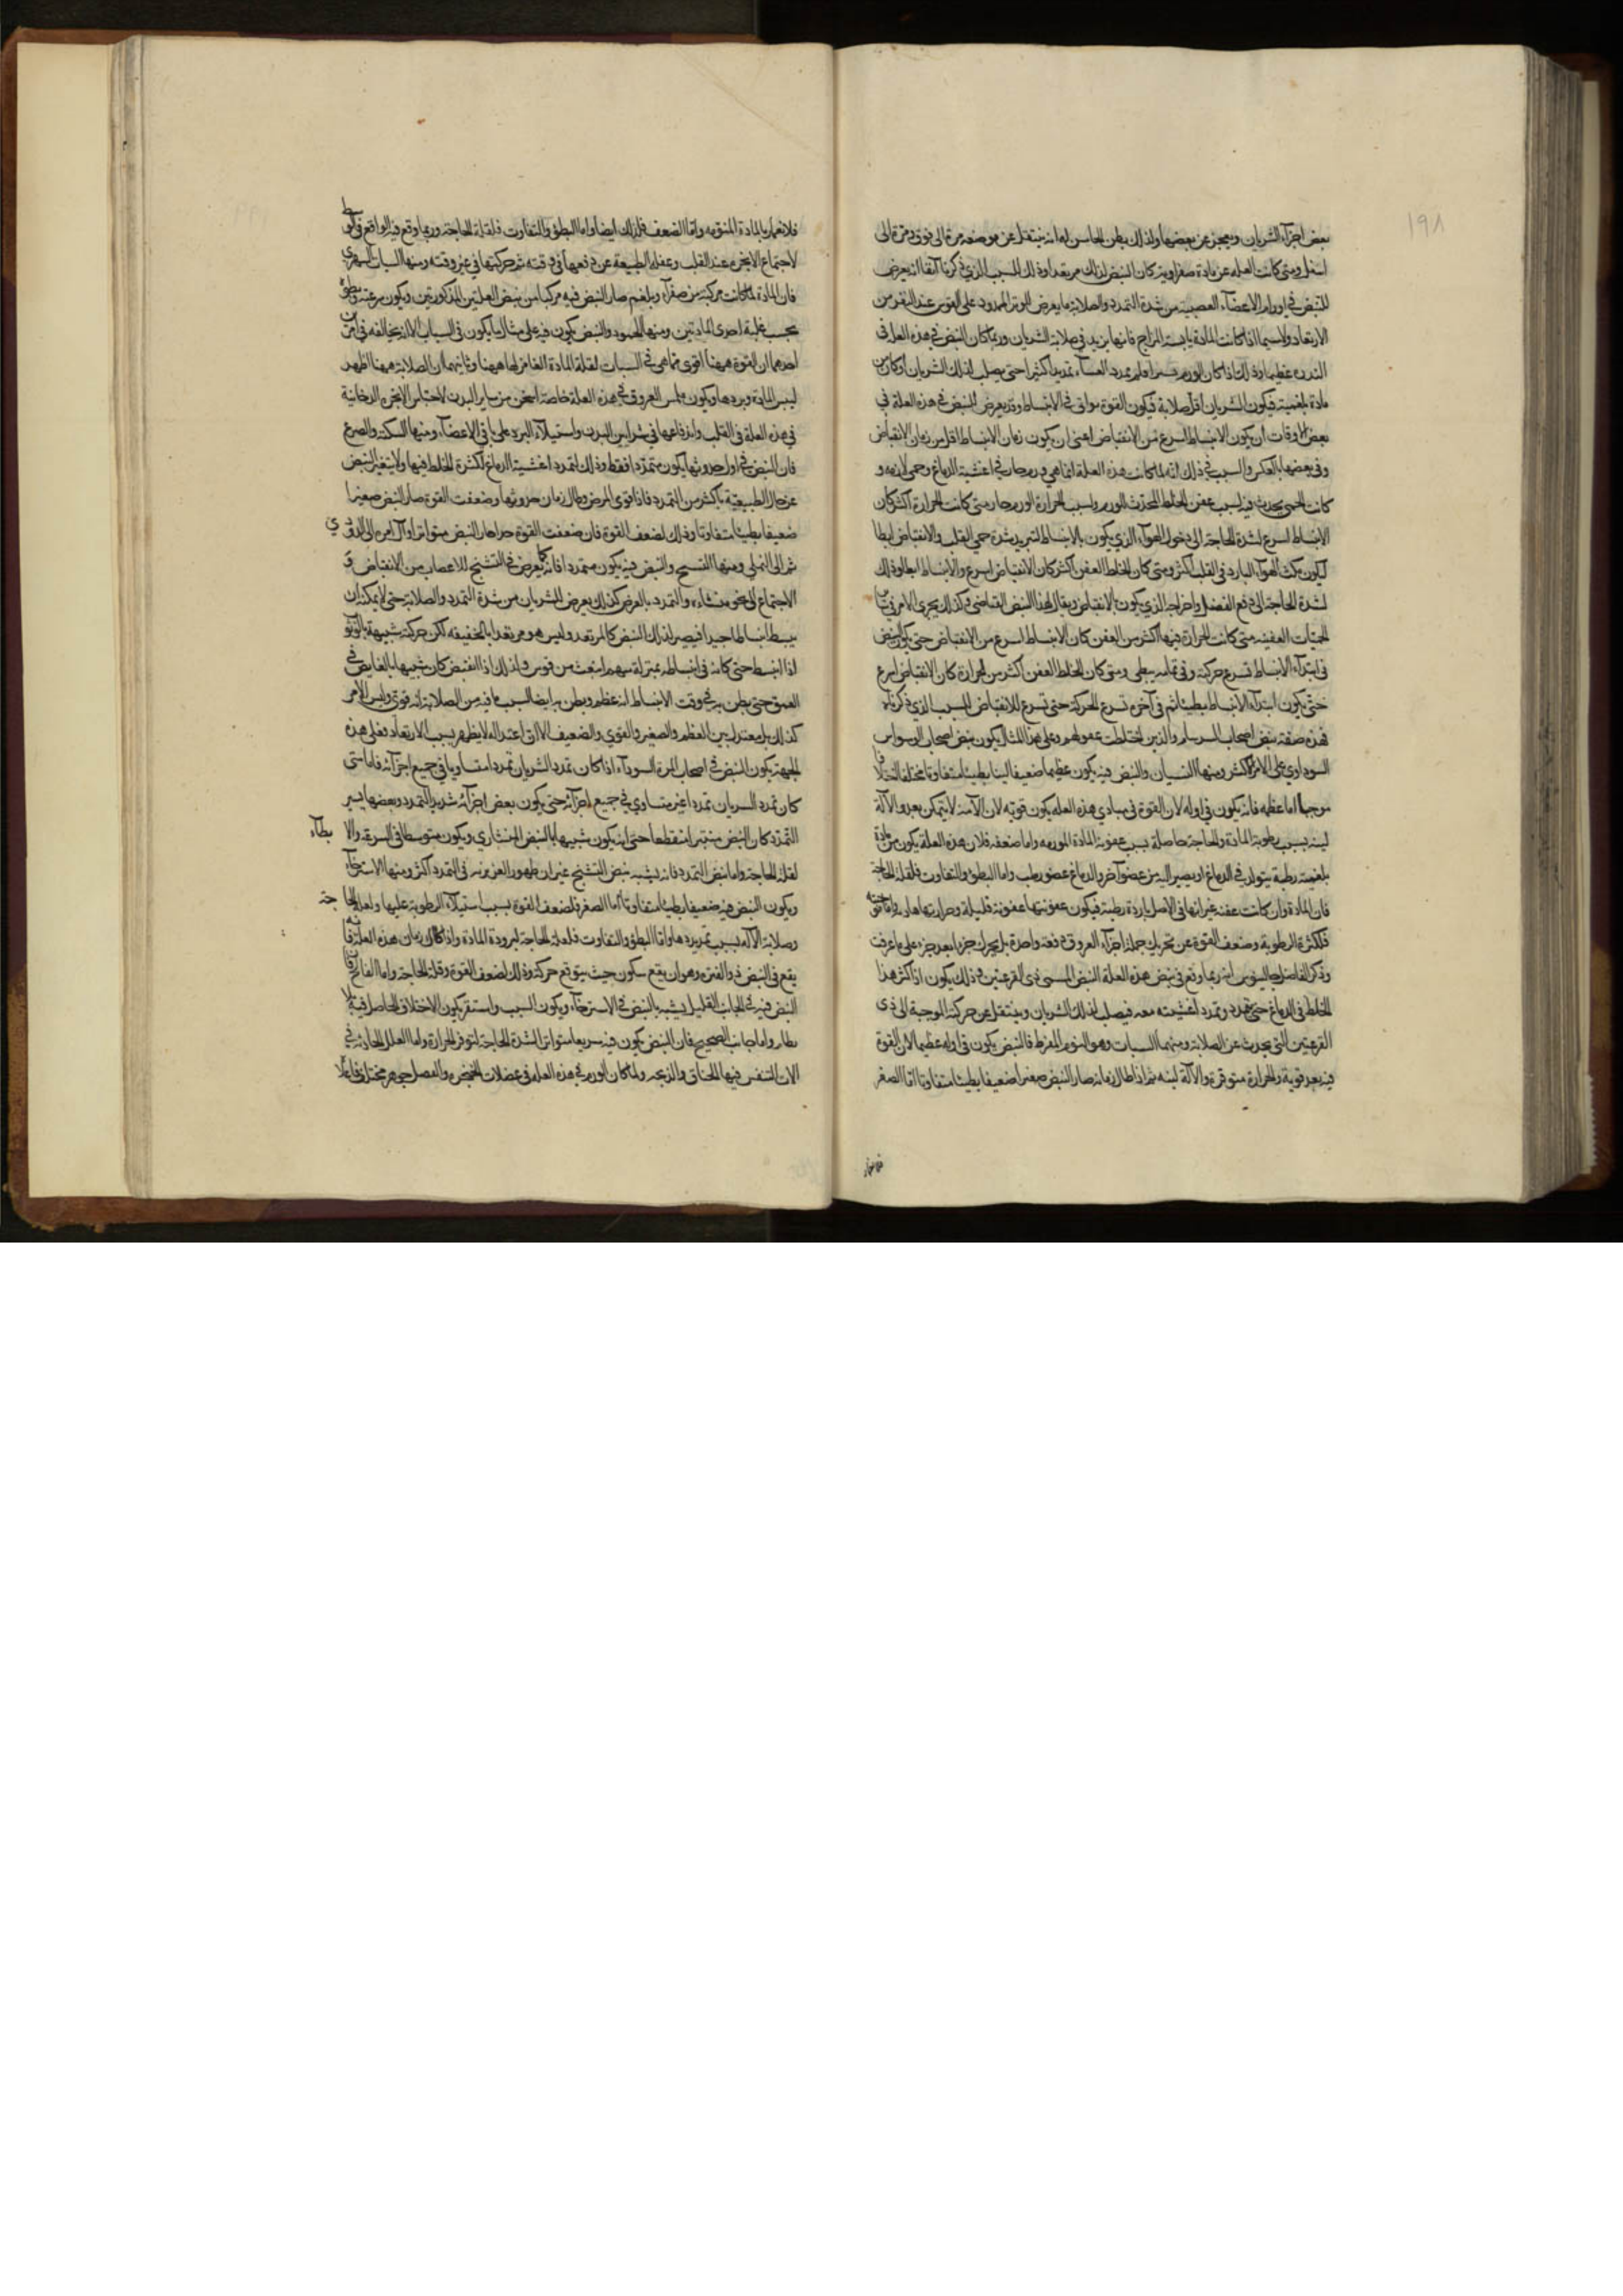 ١٩٨
بعض اجزاء الشريان ويعجز عن بعضها ولذلك يظن الحاس له انه ينتقل عن موضعه مرة الى فوق ومرة الى
اسفل ومتى كانت العله عن مادة صفراوية كان النبض لذلك مرتعدا وذلك للسبب الذي ذكرنا آنفا انه يعرض
للنبض في اورام الاعضاء العصبية من شدة التمدد والصلابة ما يعرض للوتر الممدود على القوس عند النقر من
الارتعاد ولاسيما اذا كانت المادة يابسة المزاج فانها يزيد في صلابة الشريان وربما كان النبض في هذه العلة في
الندره عظيما وذلك اذا كان الورم يسيرا ولم يمدد الغشاء تمديدا كثيرا حتى يصلب لذلك الشريان او كان من
مادة بلغمية فيكون الشريان اقل صلابة فيكون القوة مواتى في الانبساط وقد يعرض للنبض في هذه العلة في
بعض الاوقات ان يكون الانبساط اسرع من الانقباض اعنى ان يكون زمان الانبساط اقل من زمان الانقباض
وفي بعضها بالعكس والسبب في ذلك انه لما كانت هذه العلة انما هي ورم حار في اغشية الدماغ وحمى لازمه و
كانت الحمى يحدث فيه بسبب عفن الخلط المحدث للورم وبسبب الحرارة الورم حار متى كانت الحرارة اكثر كان
الانبساط اسرع لشدة الحاجة الى دخول الهواء الذي يكون بالانبساط لتبريد شدة حمى القلب والانقباض ابطا
ليكون مكث الهواء البارد في القلب اكثر ومتى كان الخلط العفن اكثر كان الانقباض اسرع والانبساط ابطا وذلك
لشدة الحاجة الى دفع الفضل واخراجه الذي يكون بالانقباض ويقال لهذا النبض القباضى وكذلك يجرى الامر في
الحميات العفنيه متى كانت الحرارة فيها اكثر من العفن كان الانبساط اسرع من الانقباض حتى يكون النبض
في ابتداء الانبساط تسرع حركته وفي تمامه يبطى ومتى كان الخلط العفن اكثر من الحرارة كان الانقباض اسرع
حتى يكون ابتداء الانبساط بطيئا ثم في آخره تسرع الحركة حتى تسرع للانقباض للسبب الذي ذكرناه
فهذه صفة نبض اصحاب السرسام والذين اختلطت عقولهم وعلى هذا المثال يكون نبض اصحاب الوسواس
السوداوي على الامر الاكثر ومنها النسيان والنبض فيه يكون عظيما ضعيفا لينا بطيئا متفاوتا مختلفا
موجيا اما عظمه فانه يكون في اوله لان القوة في مبادي هذه العله يكون قويه لان الآمنة لا يتمكن بعد والآلة
لينه بسبب رطوبة المادة والحاجة حاصلة بسبب عفونة المادة المورمه واما ضعفه فلان هذه العلة يكون من مادة
بلغمية رطبة يتولد في الدماغ او يصير اليه من عضو آخر والدماغ عضو رطب واما البطؤ والتفاوت فلقلة الحاجة
فان المادة وان كانت عفنه غير انها في الاصل باردة رطبة فيكون عفونتها عفونة قليلة وحرارتها هادية واما
فلكثرة الرطوبة وضعف القوة عن تحريك جملة اجزاء العروق دفعة واحدة بل يحرك جزءا بعد جزء على ما عرفت
وذكر الفاضل جالينوس انه ربما وقع في نبض هذه العلة النبض المسمى ذى القرعتين وذلك يكون اذا كثر هذا
الخلط في الدماغ حتى تمدد وتمدد اغشيته معه فيصلب لذلك الشريان وينتقل عن حركته الموجبة الى ذى
القرعتين التي يحدث عن الصلابة ومنها السبات وهو النوم المفرط فالنبض يكون في اوله عظيما لان القوة
فيه بعد قوية والحرارة متوفرة والآلة لينه ثم اذا طال زمانه صار النبض صغيرا ضعيفا بطيئا متفاوتا اما الصغر
فلانغمار
فلانغمارها بالمادة المنومه واما الضعف فلذلك ايضا واما البطؤ والتفاوت فلقلة الحاجة وربما وقع فيه الواقع في الوسط
لاجتماع الابخره عند القلب وغفلة الطبيعة عن دفعها في وقته ثم حركتها في غير وقته ومنها السبات السهرى
فان المادة لما كانت مركبة من صفراء وبلغم صار النبض فيه مركبا من نبض العلتين المذكورتين ويكون سرعته وبطؤه
بحسب غلبة احدى المادتين ومنها الجمود والنبض يكون فيه على مثال ما يكون في السبات الا انه يخالفه في امرين
احدهما ان القوة ههنا اقوى مما هى في السبات لقلة المادة الغامرة لها ههنا وثانيهما ان الصلابة ههنا اظهر
ليبس المادة وبردها ويكون ملمس العروق في هذه العلة خاصة اسخن من ساير البدن لاحتباس الابخرة الدخانية
في هذه العلة في القلب واندفاعها في شرايين البدن واستيلاء البرد على باقي الاعضاء ومنها السكته والصرع
فان النبض في اول حدوثها يكون متمددا فقط وذلك لتمدد اغشية الدماغ لكثرة الخلط فيها ولا يتغير النبض
عن حال الطبيعية باكثر من التمدد فاذا قوى المرض وطال زمان حدوثها وضعفت القوة صار النبض صغيرا
ضعيفا بطيئا متفاوتا وذلك لضعف القوة فان ضعفت القوة جدا صار النبض متواترا وآل امره الى الدودي
ثم الى النملي ومنها التشنج والنبض فيه يكون متمددا فانه كما يعرض في التشنج للاعصاب من الانقباض و
الاجتماع الى نحو منشاءه والتمدد بالعرض كذلك يعرض للشريان من شدة التمدد والصلابة حتى لا يمكنه ان
ينبسط انبساطا جيدا فيصير لذلك النبض كالمرتعد وليس هو مرتعدا بالحقيقه لكن حركته شبيهة بالوتر
اذا انبسط حتى كانه في انبساطه بمنزلة سهم انبعث من قوس ولذلك اذا انقبض كان شبيها بالغايص في
العمق حتى يظن به في وقت الانبساط انه عظم ويظن به ايضا لسبب ما فيه من الصلابة انه قوى وليس الامر
كذلك بل معتدل بين العظم والصغير والقوي والضعيف الا ان اعتداله لا يظهر بسبب الارتعاد وفعلى هذه
الجهة يكون النبض في اصحاب المرة السوداء اذا كان تمدد الشريان تمددا متساويا في جميع اجزائه فاما متى
كان تمدد الشريان تمددا غير متساوي في جميع اجزائه حتى يكون بعض اجزائه شديد التمدد وبعضها يسير
التمدد كان النبض منتبرا منقطعا حتى انه يكون شبيها بالنبض المنشاري ويكون متوسطا في السرعة والابطاء
لقلة الحاجة واما نبض التمدد فانه يشبه نبض التشنج غير ان ظهور الغزيره في التمدد اكثر ومنها الاسترخاء
ويكون النبض فيه ضعيفا بطيئا متفاوتا اما الصغر فلضعف القوة بسبب استيلاء الرطوبة عليها ولقلة الحاجة
وصلابة الآلة بسبب تمديدها واما البطؤ والتفاوت فلقلة الحاجة لبرودة المادة واذا طال زمان هذه العلة
يقع في النبض ذو الفتره وهو ان يقع سكون حيث يتوقع حركة وذلك لضعف القوة وقلة الحاجة واما الفالج فان
النبض فيه في الجانب العليل يشبه بالنبض في الاسترخاء ويكون السبب واستقر يكون الاختلاف الحاصل فيه
بطاء واما جانب الصحيح فان النبض يكون فيه سريعا متواترا لشدة الحاجة لتوفر الحرارة واما العلل الحادثه في
الات التنفس فمنها الخناق والذبحه ولما كان الورم في هذه العله في عضلات الحنجره